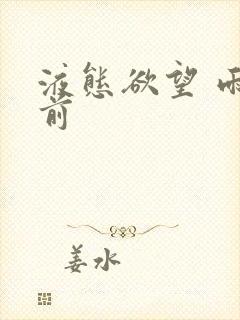 液态欲望 雨
前
姜水